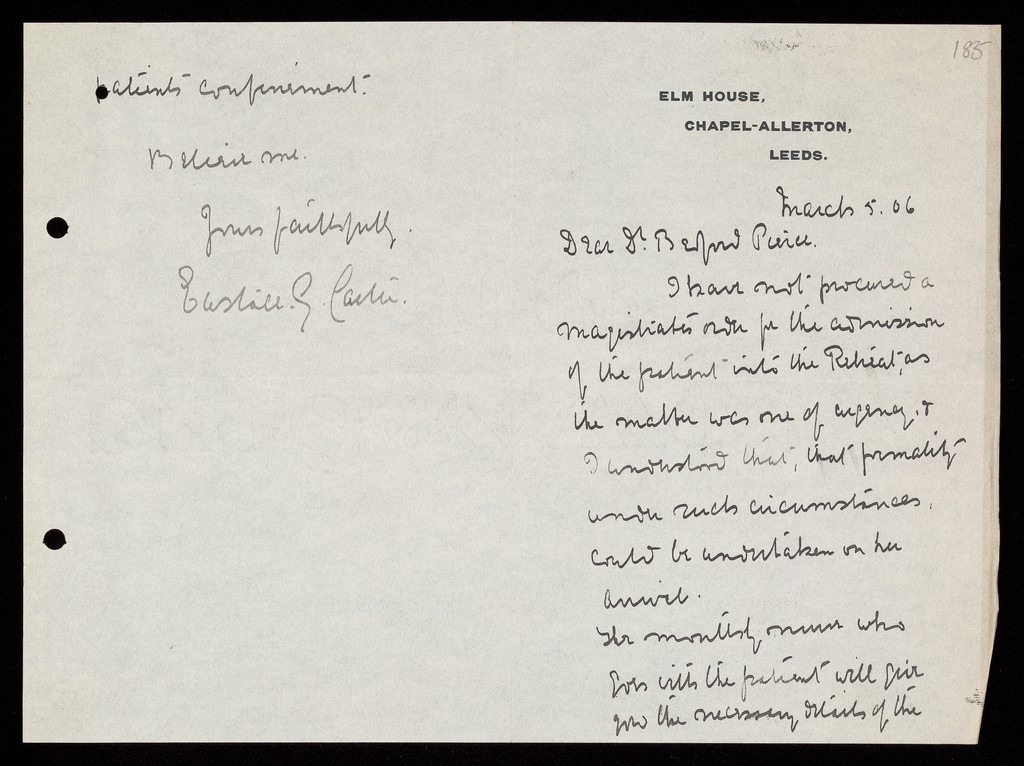 185
ELM HOUSE,
CHAPEL-ALLERTON,
LEEDS.
March 5. 06
Dear Dr. Bedford Pierce.
I have not procured a
magistrates order for the admission
of the patient into the Retreat, as
the matter was one of urgency, &
I understood that, that formality
under such circumstances,
could be undertaken on her
arrival.
The monthly nurse who
goes with the patient will give
you the necessary details of the
patients confinement.
Believe me.
Yours faithfully.
Eustace. G. Carter.